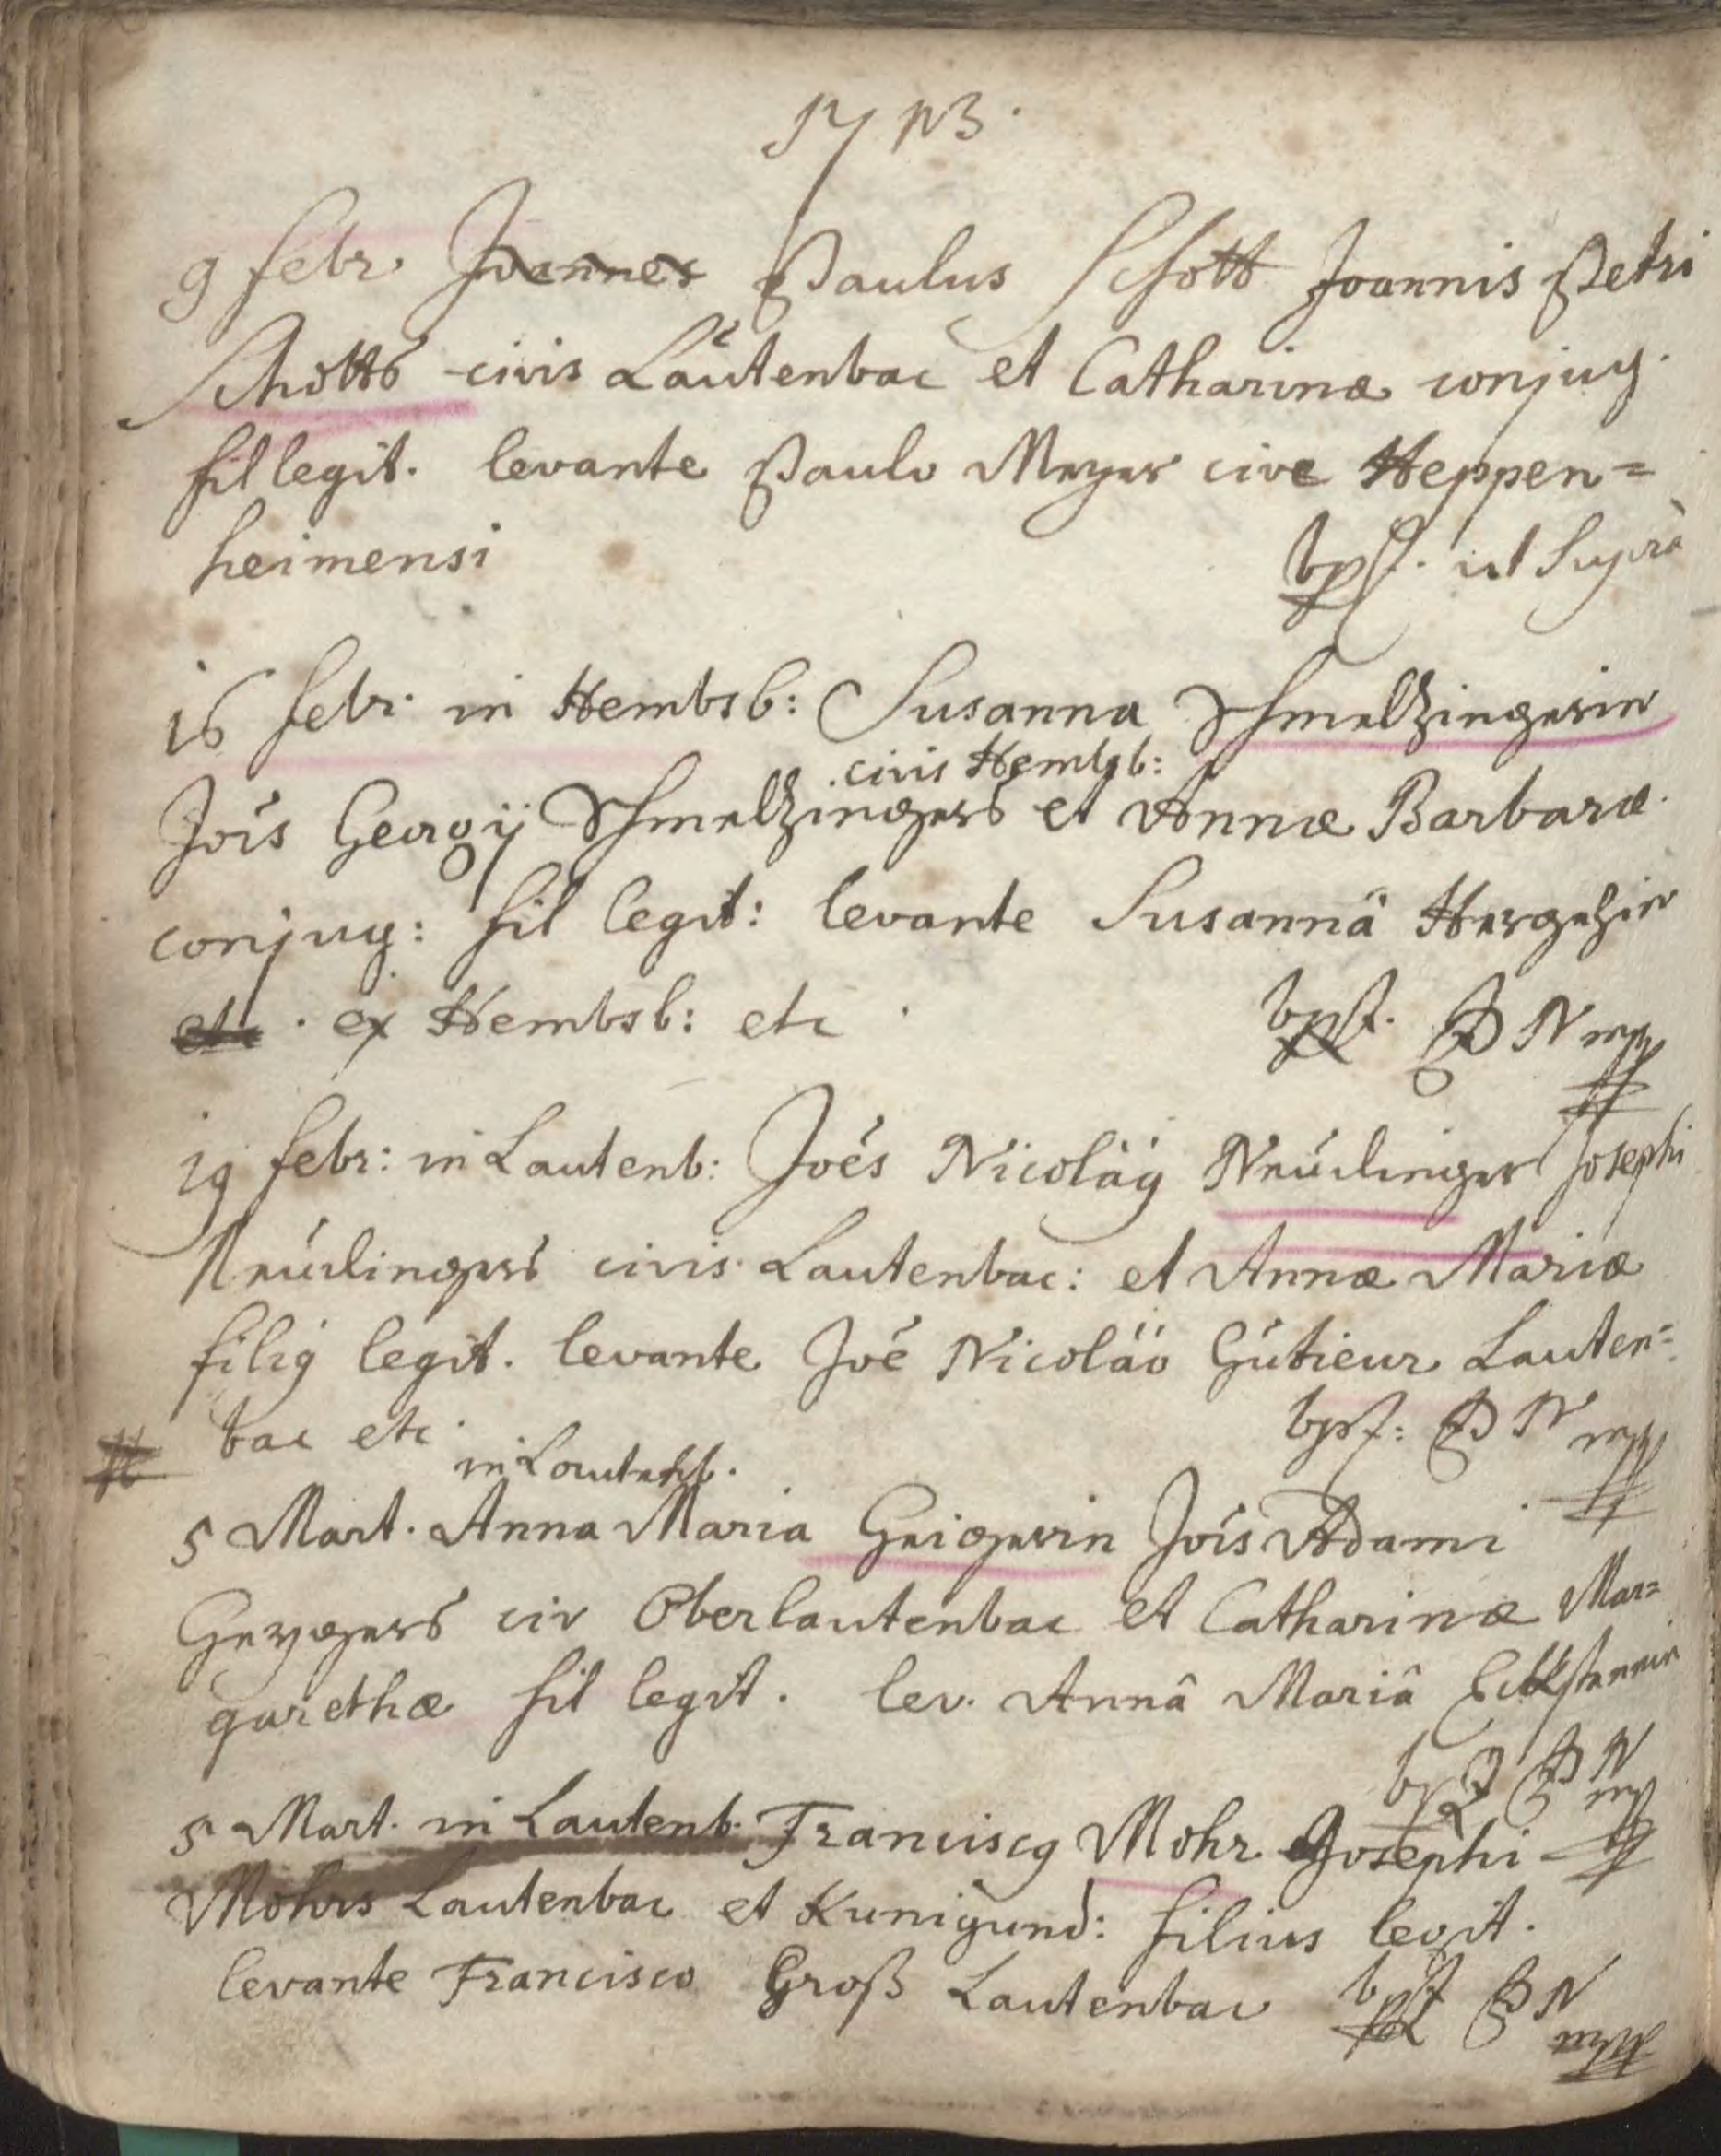 1713.
9 febr Joannes Paulus Schott Joannis Petri
Schotts civis Lautenbac et Catharinæ conjug.
fil legit. levante Paulo Meyer cive Heppen=
heimensi bpt. ut Suprà
16 febr. in Hembsb: Susanna Schmeltzingerin
civis Hembsb:
Jois Georgÿ Schmeltzingers et Annæ Barbaræ
conjug: fil legit: levante Susannâ
etc. ex Hembsb: etc. bpt. N mpp
19 febr: in Lautenb: Joës Nicoläg Neudinger Josephi
Neudingers civis Lautenbac: et Annæ Mariæ
filig legit. levante Joë Nicoläo Gutieur Lauten=
bac etc bpt: N mpp
in Lautenb.
5 Mart. Anna Maria Geigerin Jois Adami
Geygers civ Oberlautenbac et Catharinæ Mar=
garethæ fil legit. lev. Annâ Mariâ
bpt N mpp
5 Mart. in Lautenb. Franciscg Mohr Josephi
Mohrs Lautenbac et Kunigund: filius legit.
levante Francisco Groß Lautenbac bpt N
mpp